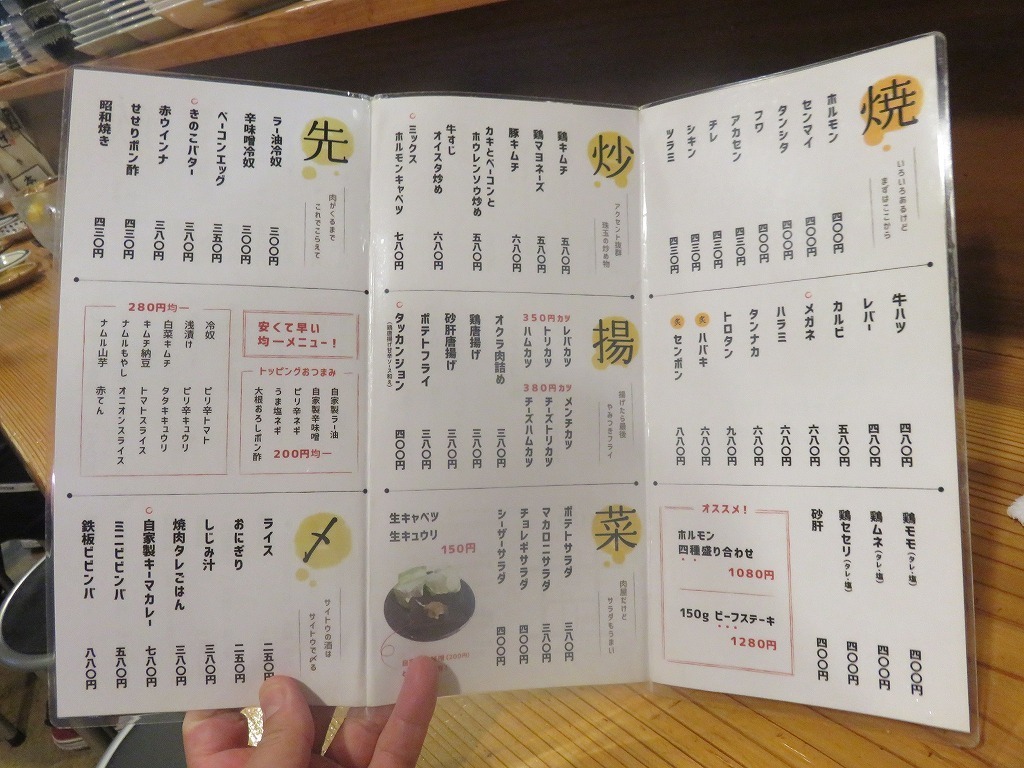 焼
いろいろあるけど
まずはここから
ホルモン 四〇〇円
センマイ 四〇〇円
タンシタ 四〇〇円
フワ 四〇〇円
アカセン 四三〇円
チレ 四三〇円
シキン 四三〇円
ツラミ 四三〇円
牛ハツ 四八〇円
レバー 四八〇円
カルビ 五八〇円
メガネ 六八〇円
ハラミ 八八〇円
タンナカ 八八〇円
トロタン 九八〇円
炙 ハバキ 六八〇円
炙 センボン 八八〇円
鶏モモ(タレ・塩) 四〇〇円
鶏ムネ(タレ・塩) 四〇〇円
鶏セセリ(タレ・塩) 四〇〇円
砂肝 四〇〇円
オススメ!
ホルモン
四種盛り合わせ
1080円
150g ビーフステーキ
1280円
炒
アクセント抜群
珠玉の炒め物
鶏キムチ 五八〇円
鶏マヨネーズ 五八〇円
豚キムチ 六八〇円
カキとベーコンと
ホウレンソウ炒め 五八〇円
牛すじ
オイスタ炒め 六八〇円
ミックス
ホルモンキャベツ 七八〇円
揚
揚げたら最後
やみつきフライ
350円カツ
レバカツ
トリカツ
ハムカツ
380円カツ
メンチカツ
チーズトリカツ
チーズハムカツ
オクラ肉詰め 三八〇円
鶏唐揚げ 三八〇円
砂肝唐揚げ 三八〇円
ポテトフライ 三八〇円
タッカンジョン 四〇〇円
菜
肉屋だけど
サラダもうまい
ポテトサラダ 三八〇円
マカロニサラダ 三八〇円
チョレギサラダ 四〇〇円
シーザーサラダ 五〇〇円
生キャベツ
生キュウリ
150円
(200円)
先
肉がくるまで
これでこらえて
ラー油冷奴 三〇〇円
辛味噌冷奴 三〇〇円
ベーコンエッグ 三五〇円
きのこバター 三八〇円
赤ウインナ 三八〇円
せせりポン酢 四三〇円
昭和焼き 四三〇円
安くて早い
均一メニュー!
トッピングおつまみ
自家製ラー油
自家製辛味噌
ピリ辛ネギ
うま塩ネギ
大根おろしポン酢
200円均一
280円均一
冷奴
浅漬け
白菜キムチ
キムチ納豆
ナムルもやし
ナムル山芋
ピリ辛トマト
ピリ辛キュウリ
タタキキュウリ
トマトスライス
オニオンスライス
赤てん
〆
サイトウの酒は
サイトウで〆る
ライス 二五〇円
おにぎり 二五〇円
しじみ汁 三八〇円
焼肉タレごはん 三八〇円
自家製キーマカレー 七八〇円
ミニビビンバ 五八〇円
鉄板ビビンバ 八八〇円